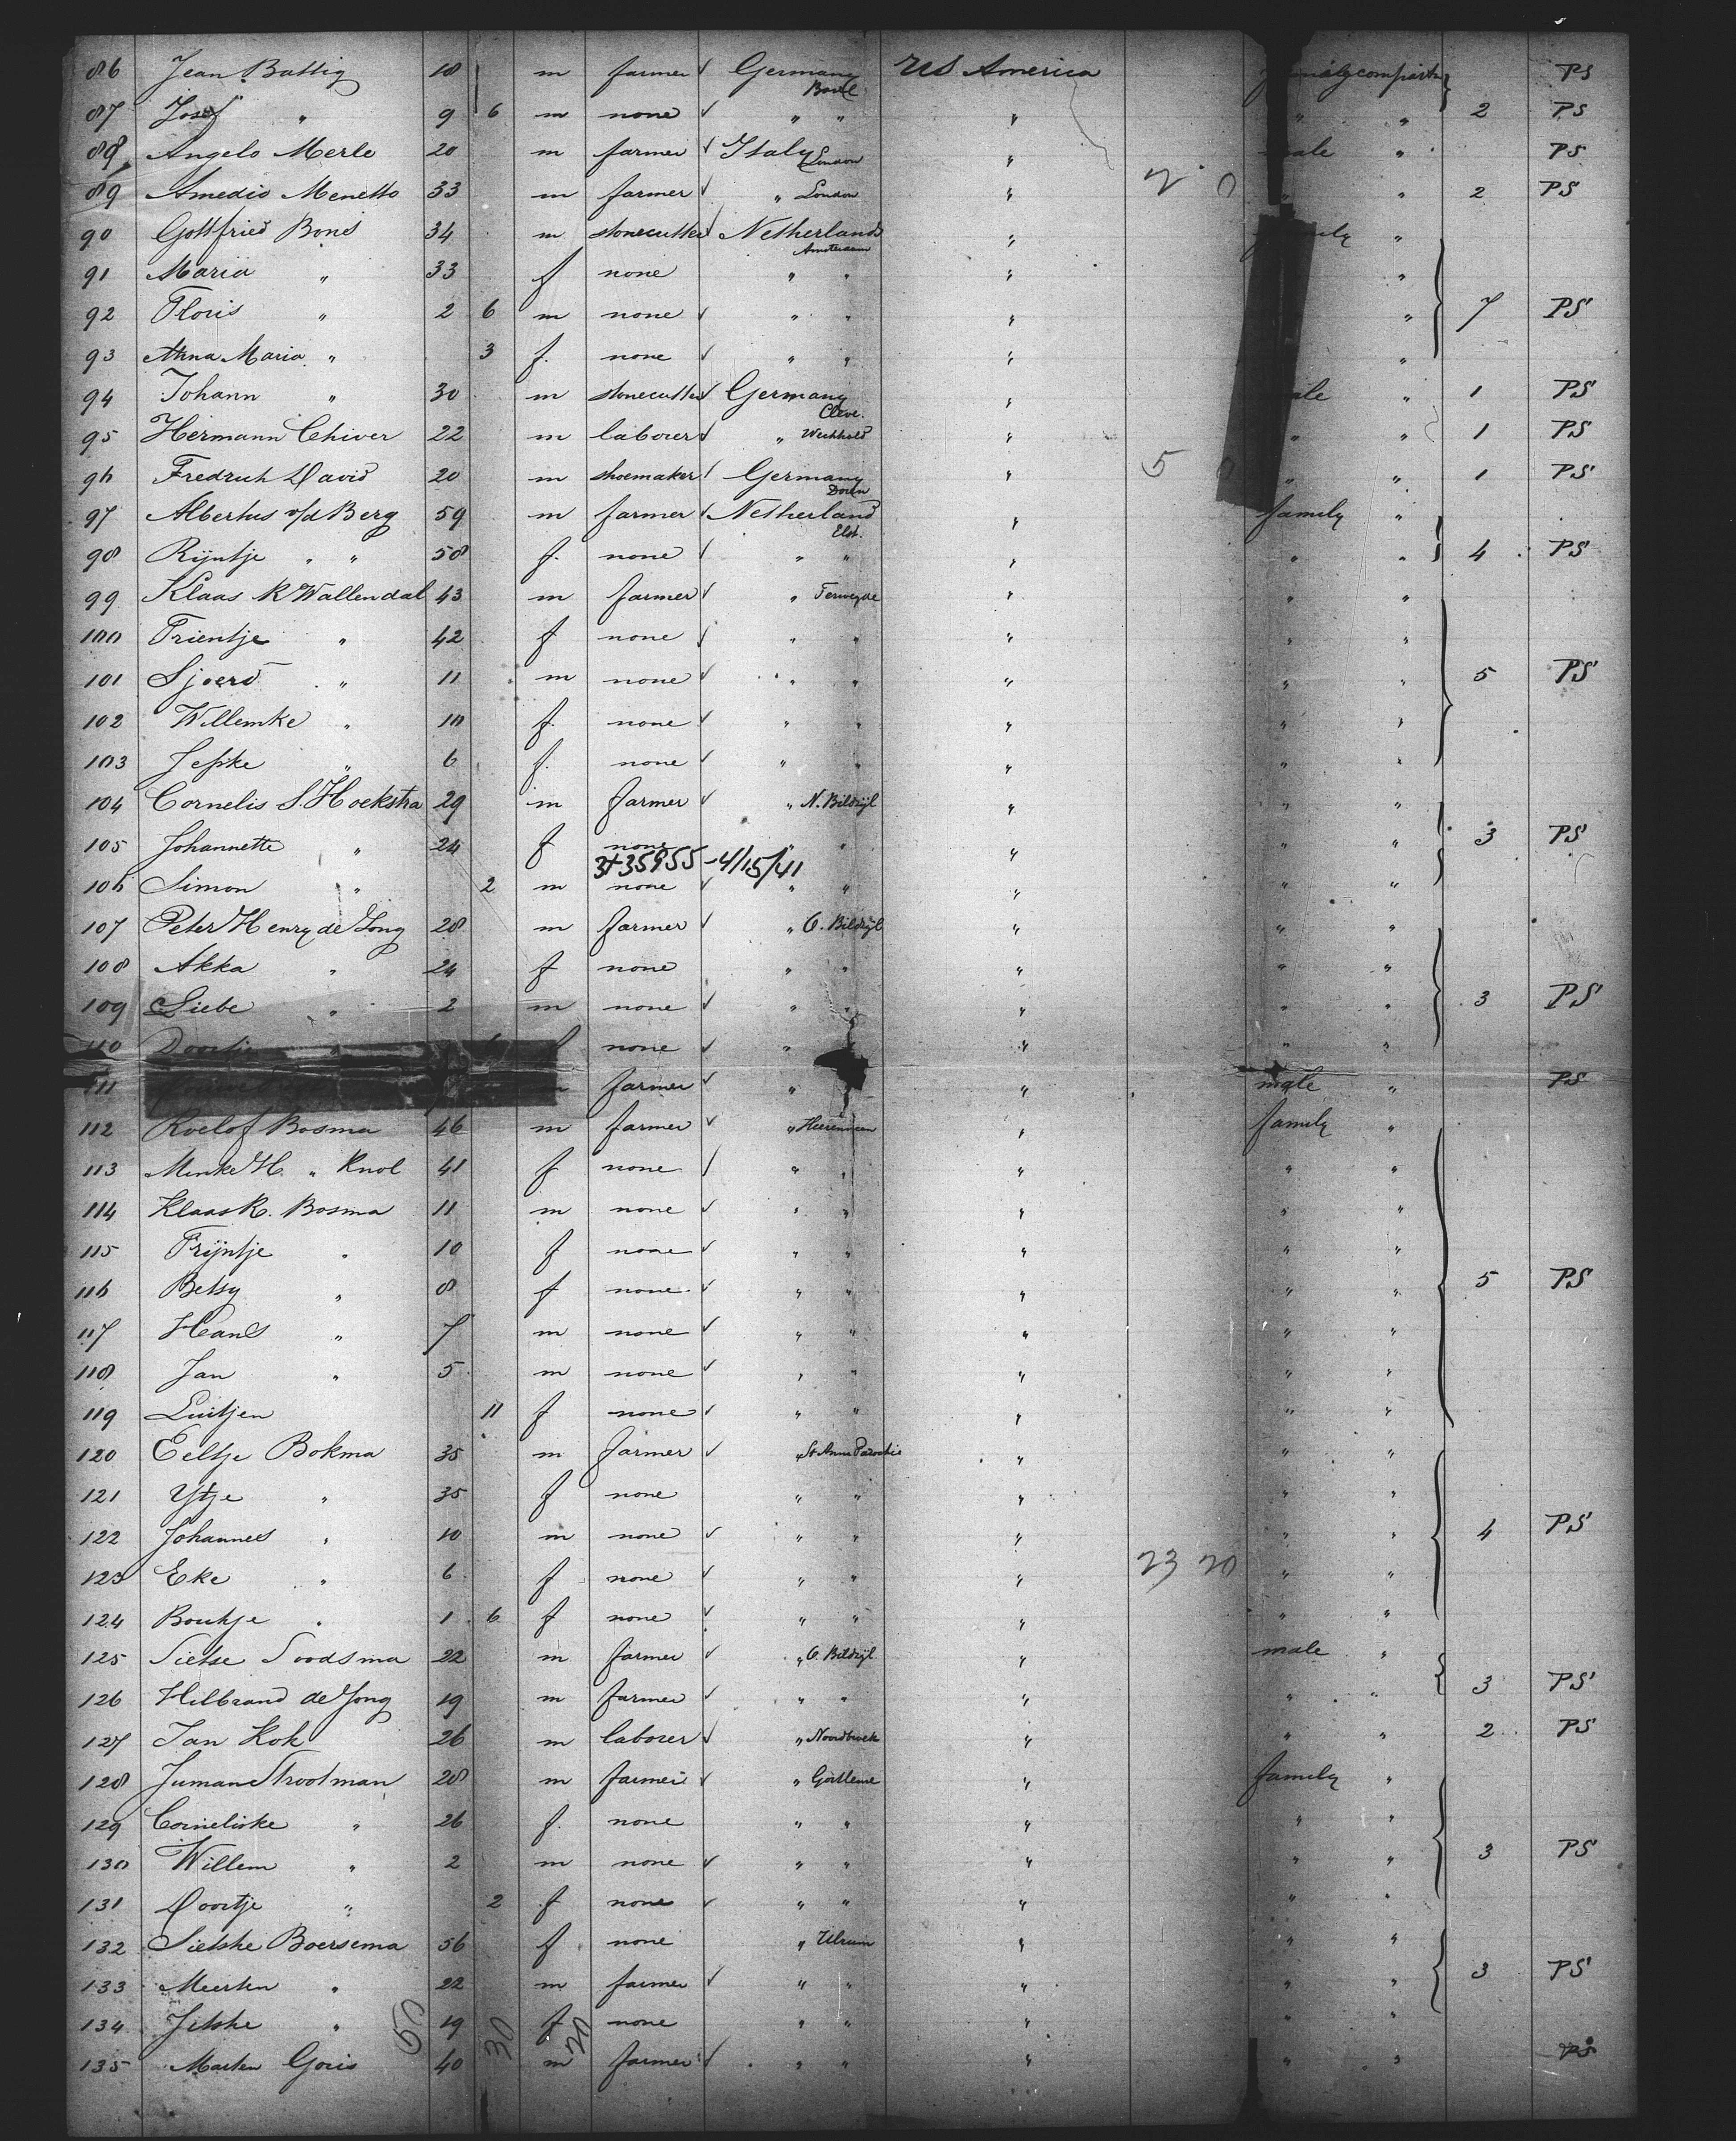 86 Jean Battig 18 m farmer ✓ Germany Basel US America compartm PS
87 Josef " 9 6 m none ✓ " " " " " 2 PS
88 Angelo Merlo 20 m farmer ✓ Italy London " ale " PS
89 Amedio Menetto 33 m farmer ✓ " London " " " 2 PS
90 Gottfried Bonis 34 m stonecutter ✓ Netherland Amsterdam " "
91 Maria " 33 f none " " " "
92 Floris " 2 6 m none ✓ " " " " 7 PS
93 Anna Maria " 3 f. none ✓ " " " "
94 Johann " 30 m stonecutter ✓ Germany Cleve. " ale " 1 PS
95 Hermann Chiver 22 m laborer ✓ " " " " 1 PS
96 Fredrich David 20 m shoemaker ✓ Germany " 5 0 " " 1 PS
97 Albertus v/d Berg 59 m farmer ✓ Netherland Elst. " family "
98 Rijntje " " 58 f. none ✓ " " " " " 4 PS
99 Klaas K Wallendal 43 m farmer ✓ " Ferwerde " " "
100 Trientje " 42 f none ✓ " " " " "
101 Sjoerd " 11 m none ✓ " " " " " 5 PS
102 Willemke " 10 f. none ✓ " " " " "
103 Jepke " 6 f. none ✓ " " " " "
104 Cornelis S. Hoekstra 29 m farmer ✓ " N. Bildzijl " " "
105 Johannette " 24 f none " " " " " 3 PS
3+35955 - 4/15/41
106 Simon " 2 m none ✓ " " " " "
107 Peter Henry de Jong 28 m farmer ✓ " O. Bildzijl " " "
108 Akka " 24 f none " " " " "
109 Siebe " 2 m none ✓ " " " " " 3 PS
110 Doortje " none ✓ " " " "
111 m farmer ✓ " " male " PS
112 Roelof Bosma 46 m farmer ✓ " Heerenveen " family "
113 Minke H. " Knol 41 f none ✓ " " " " "
114 Klaas R. Bosma 11 m none ✓ " " " " "
115 Trijntje " 10 f none ✓ " " " " "
116 Betsy " 8 f none ✓ " " " " " 5 PS
117 Hans " 7 m none ✓ " " " " "
118 Jan " 5 m none ✓ " " " " "
119 Luitjen 11 f none ✓ " " " " "
120 Eeltje Bokma 35 m farmer ✓ " St Anna Parochie " " "
121 Ytje " 35 f none " " " " "
122 Johannes " 10 m none ✓ " " " " " 4 PS
123 Eke " 6 f none ✓ " " " 23 20 " "
124 Boukje " 1 6 f none ✓ " " " " "
125 Sietse Soodsma 22 m farmer ✓ " O. Bildzijl " male "
126 Hilbrand de Jong 19 m farmer ✓ " " " " " 3 PS
127 Jan Kok 26 m laborer ✓ " Noordbroek " " " 2 PS
128 Juman Strootman 28 m farmer ✓ " " family "
129 Corneliske " 26 f. none " " " " "
130 Willem " 2 m none ✓ " " " " " 3 PS
131 Doortje " 2 f none ✓ " " " " "
132 Sietske Boersema 56 f none " Ulrum " " "
133 Meerten " 22 m farmer ✓ " " " " " 3 PS
134 Jetske " 19 f none " " " " "
135 Marten Goris 40 m farmer ✓ " " " " " PS
60 30 20